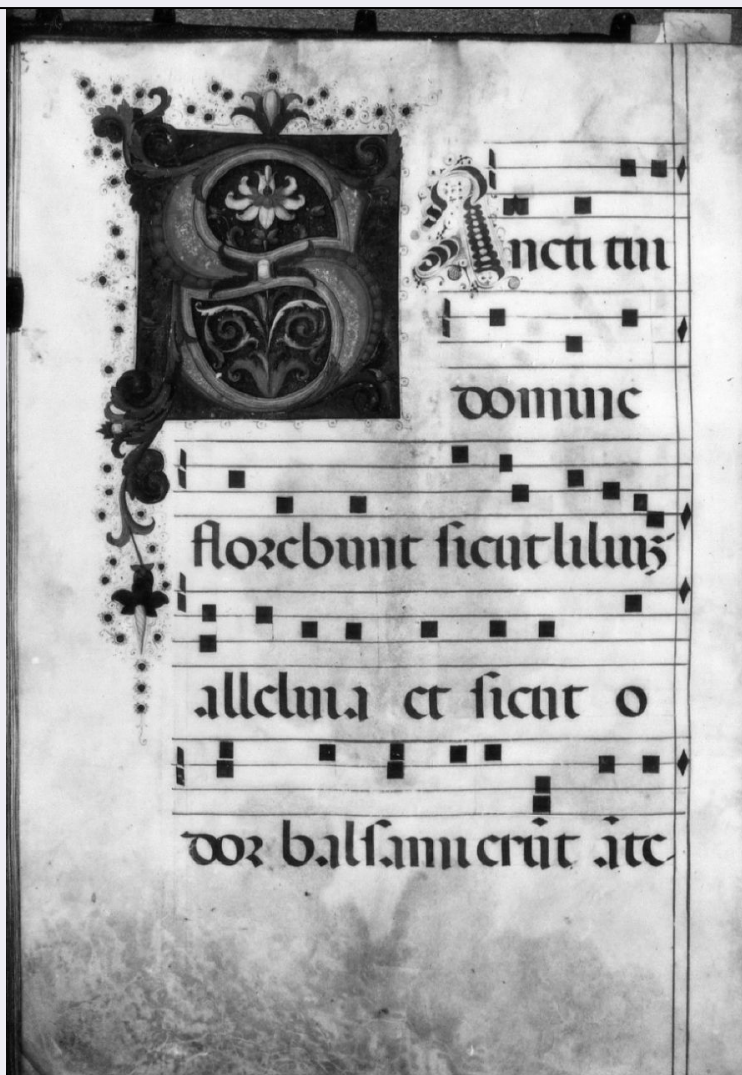 SAncti tui
domine
florebunt sicut liliuꝫ
alleluia et sicut o
dor balsami erūt āte